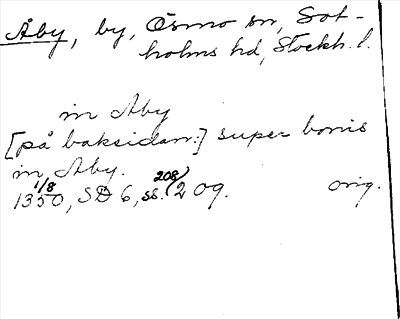 Åby, by, Ösmo sn, Sot-
holms hd, Stockh. l.
in Aby
[på baksidan:] super bonis
in Aby.
1350 1/8, SD 6, ss. 208, 209. orig.